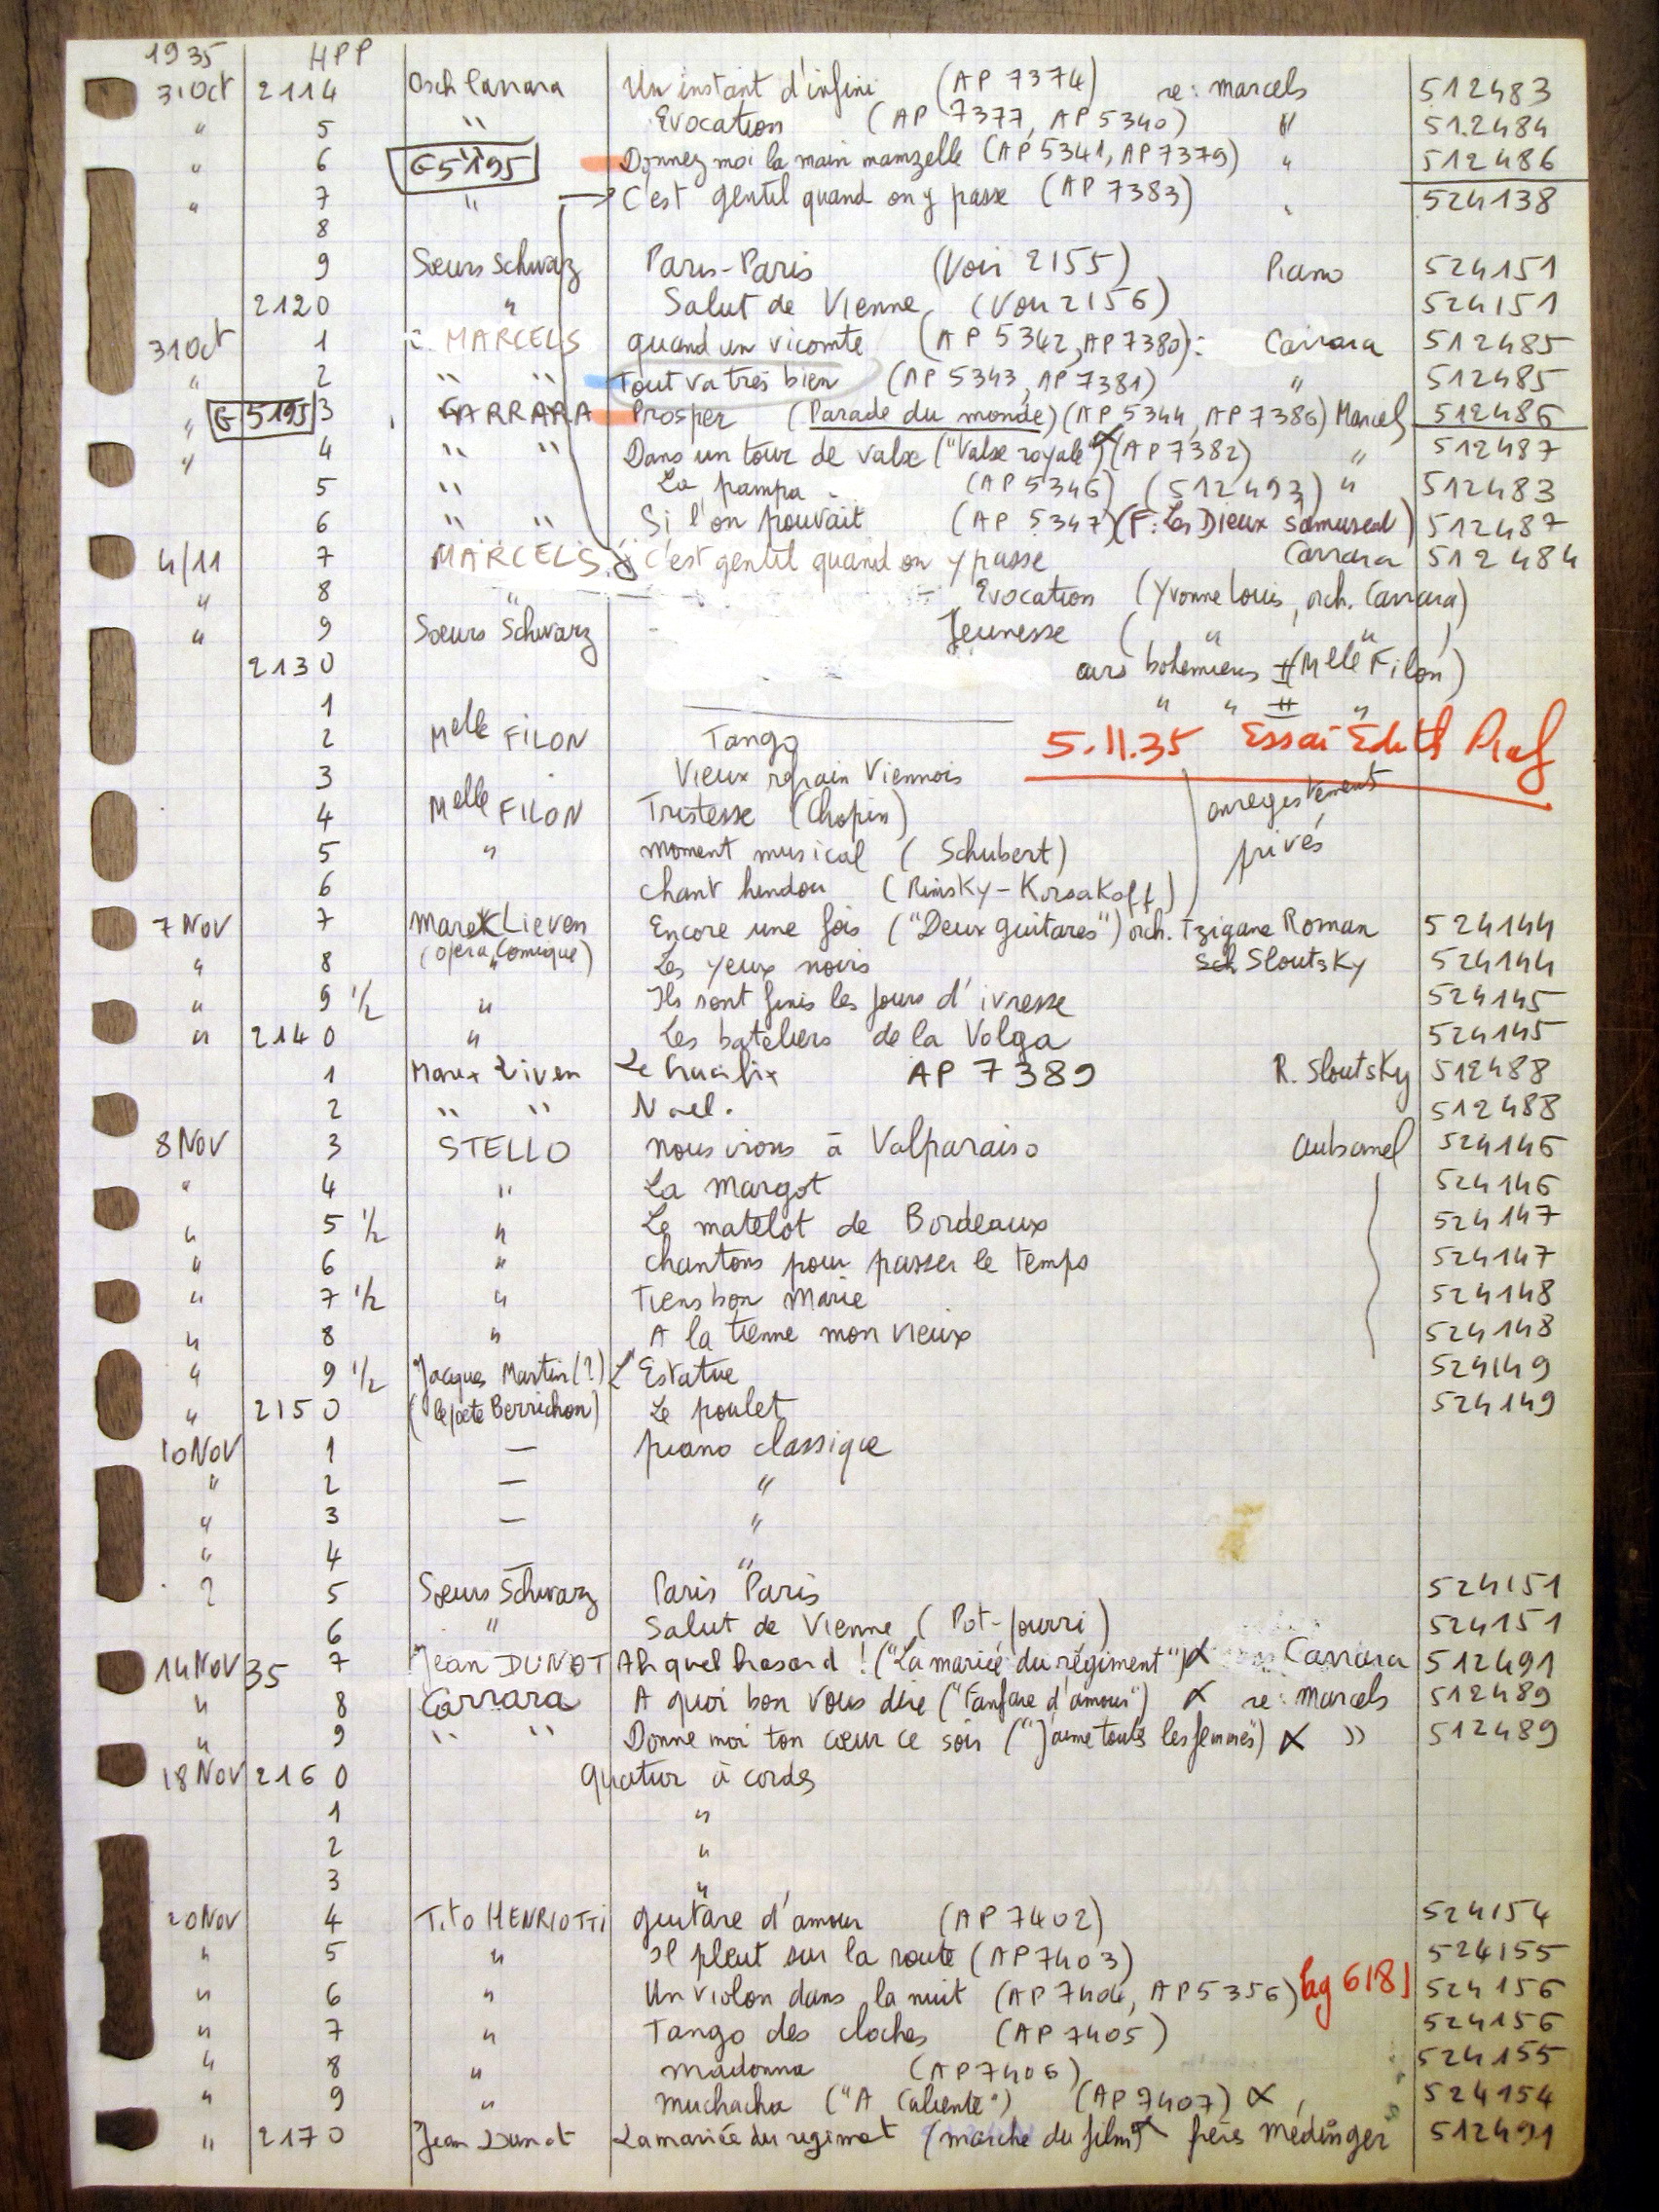 1935 HPP
31 Oct 2114 Orch Carrara Un instant d'infini (AP 7374) re: marcels 512483
" 5 " Evocation (AP 7377, AP 5340) " 512484
" 6 G5195 " Donnez moi la main mamzelle (AP 5341, AP 7379) " 512486
" 7 " → C'est gentil quand on y passe (AP 7383) " 524138
8
9 Sœurs Schwarz Paris-Paris (Voir 2155) Piano 524151
2120 " Salut de Vienne (Voir 2156) 524151
31 Oct 1 MARCELS quand un vicomte (AP 5342, AP 7380): Carrara 512485
" 2 " " Tout va très bien (AP 5343, AP 7381) " 512485
" G 5195 3 CARRARA Prosper (Parade du monde) (AP 5344, AP 7386) Marcels 512486
" 4 " " Dans un tour de valse ("Valse royale") (AP 7382) " 512487
5 " La pampa (AP 5346) (512493) " 512483
6 " " Si l'on pouvait (AP 5347) (F: Les Dieux s'amusent) 512487
4/11 7 MARCELS C'est gentil quand on y passe Carrara 512484
" 8 " Evocation (Yvonne Louis, orch. Carrara)
" 9 Sœurs Schwarz Jeunesse ( " " )
2130 airs bohemiens I (Melle Filon)
1 " " II "
2 Melle FILON Tango 5.11.35 Essai Edith Piaf
3 Vieux refrain Viennois
4 Melle FILON Tristesse (Chopin) enregistrements
5 " moment musical (Schubert) privés
6 chant hindou (Rimsky-Korsakoff)
7 Nov 7 Marex Lieven Encore une fois ("Deux guitares") orch. Tzigane Roman 524144
" 8 (opéra Comique) " Les yeux noirs Sloutsky 524144
" 9 1/2 " Ils sont finis les jours d'ivresse 524145
" 2140 " Les bateliers de la Volga 524145
1 Marex Liven Le Crucifix AP 7389 R. Sloutsky 512488
2 " " Noel. 512488
8 Nov 3 STELLO nous irons à Valparaiso Aubanel 524146
" 4 " La margot 524146
" 5 1/2 " Le matelot de Bordeaux 524147
" 6 " chantons pour passer le temps 524147
" 7 1/2 " Tiens bon Marie 524148
" 8 " A la tienne mon vieux 524148
" 9 1/2 Jacques Martin (?) L'Estatue 524149
" 2150 (le pète Berrichon) Le poulet 524149
10 Nov 1 — piano classique
" 2 — "
" 3 — "
" 4 — "
? 5 Sœurs Schwarz Paris Paris 524151
6 " Salut de Vienne (Pot-pourri) 524151
14 Nov 35 7 Jean DUNOT Ah quel hasard ! ("La mariée du régiment") α Carrara 512491
" 8 Carrara A quoi bon vous dire ("Fanfare d'amour") α re: marcels 512489
" 9 " " Donne moi ton cœur ce soir ("J'aime toutes les femmes") α " 512489
18 Nov 2160 Quatuor à cordes
1 "
2 "
3 "
20 Nov 4 Tito HENRIOTTI guitare d'amour (AP 7402) 524154
" 5 " Il pleut sur la route (AP 7403) 524155
" 6 " Un violon dans la nuit (AP 7404, AP 5356) bg 618] 524156
" 7 " Tango des cloches (AP 7405) 524156
" 8 " Madonna (AP 7406) 524155
" 9 " muchacha ("A Caliente") (AP 7407) α 524154
" 2170 Jean Dunot La mariée du regiment (marche du film) α frères Médinger 512491